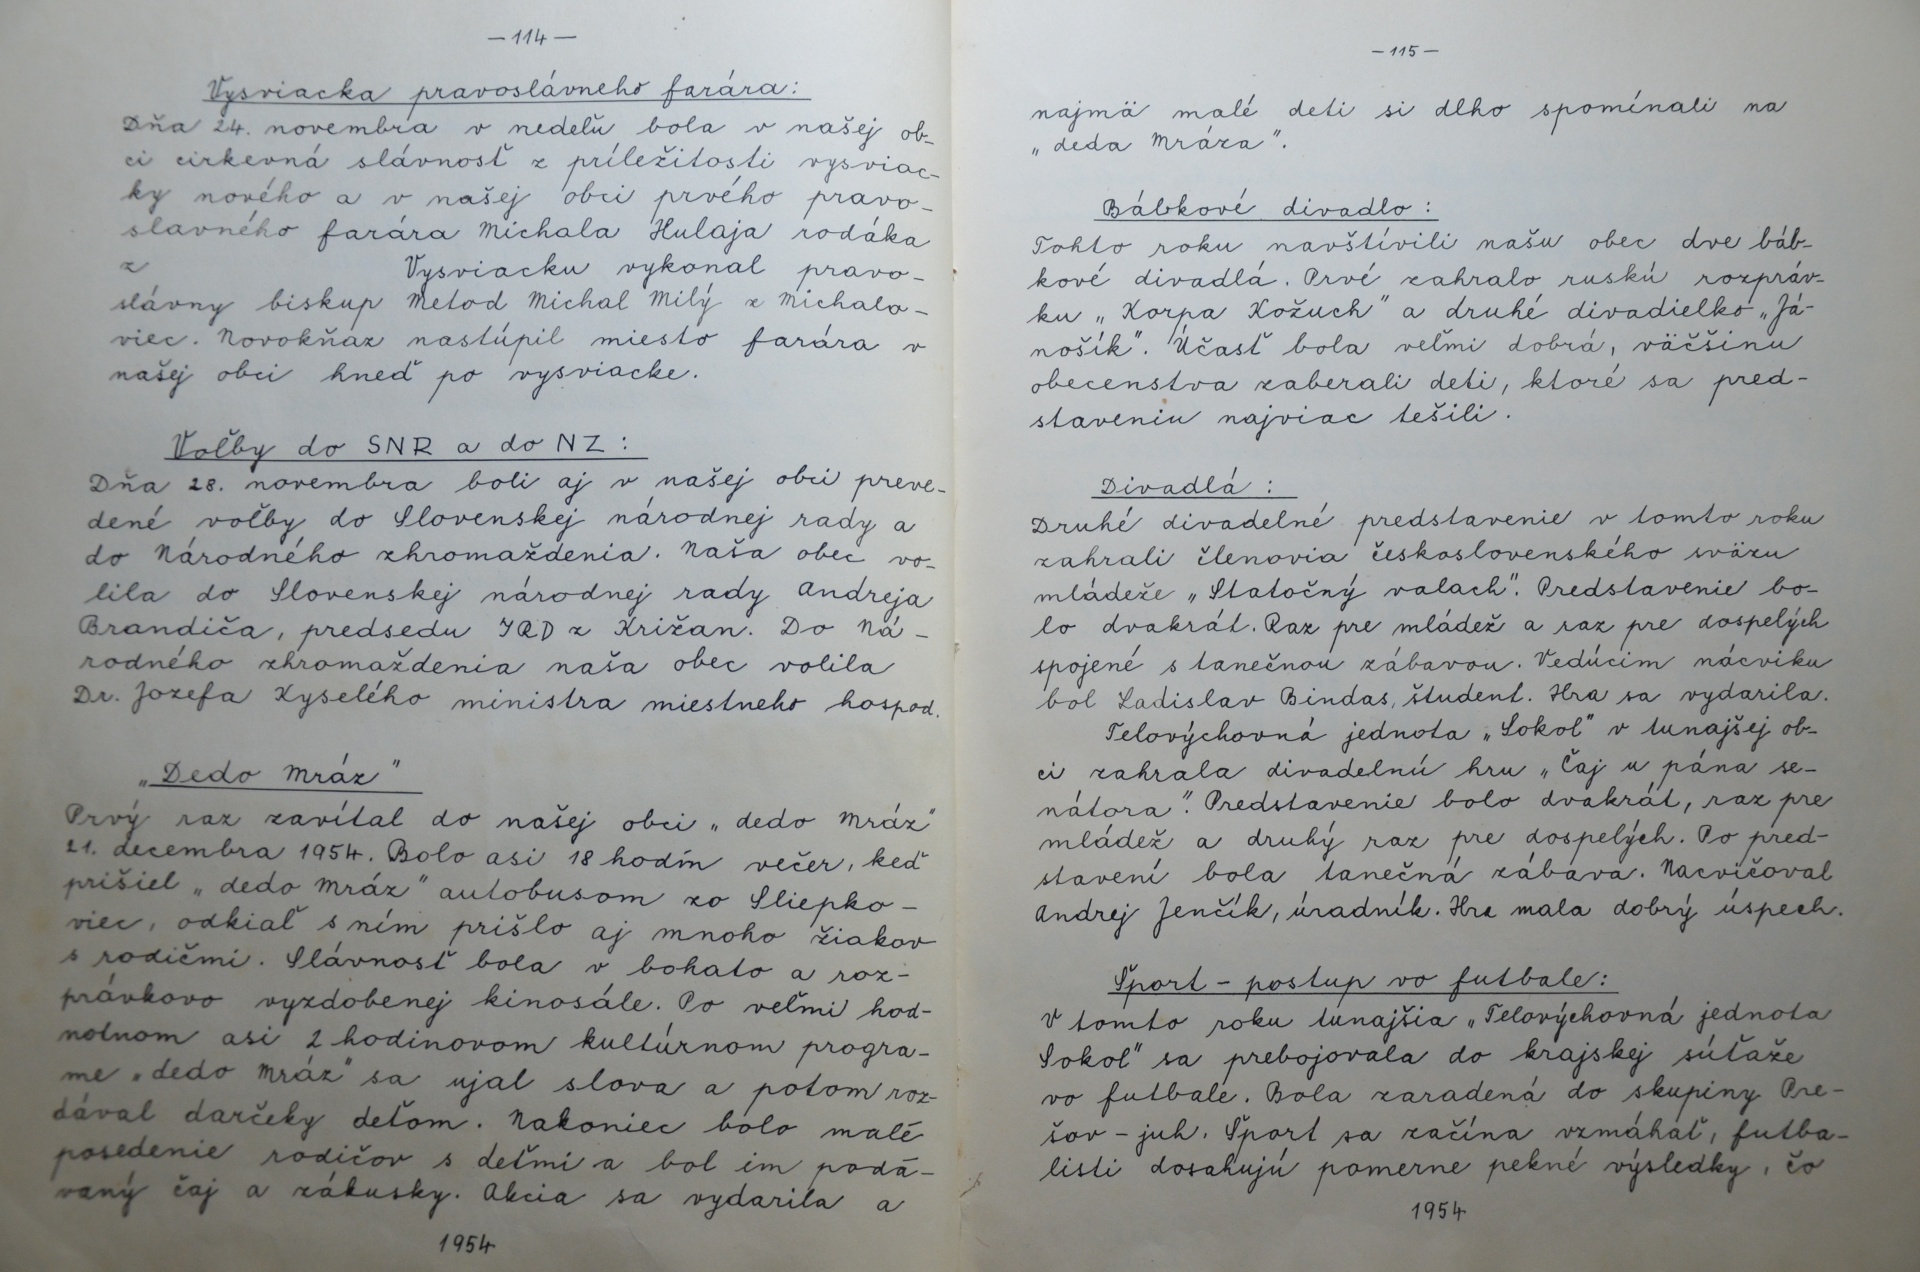 — 114 —
Vysviacka pravoslávneho farára:
Dňa 24. novembra v nedeľu bola v našej ob-
ci cirkevná slávnosť z príležitosti vysviac-
ky nového a v našej obci prvého pravo-
slavného farára Michala Hulaja rodáka
z Vysviacku vykonal pravo-
slávny biskup Metod Michal Milý z Michalo-
viec. Novokňaz nastúpil miesto farára v
našej obci hneď po vysviacke.
Voľby do SNR a do NZ:
Dňa 28. novembra boli aj v našej obci preve-
dené voľby do Slovenskej národnej rady a
do Národného zhromaždenia. Naša obec vo-
lila do Slovenskej národnej rady Andreja
Brandiča, predsedu JRD z Križan. Do Ná-
rodného zhromaždenia naša obec volila
Dr. Jozefa Kyselého ministra miestneho hospod.
„Dedo Mráz"
Prvý raz zavítal do našej obci „dedo Mráz"
21. decembra 1954. Bolo asi 18 hodín večer, keď
prišiel „dedo Mráz" autobusom zo Sliepko-
viec, odkiaľ s ním prišlo aj mnoho žiakov
s rodičmi. Slávnosť bola v bohato a roz-
právkovo vyzdobenej kinosále. Po veľmi hod-
notnom asi 2 hodinovom kultúrnom progra-
me „dedo Mráz" sa ujal slova a potom roz-
dával darčeky deťom. Nakoniec bolo malé
posedenie rodičov s deťmi a bol im podá-
vaný čaj a zákusky. Akcia sa vydarila a
1954
— 115 —
najmä malé deti si dlho spomínali na
„deda Mráza".
Bábkové divadlo:
Tohto roku navštívili našu obec dve báb-
kové divadlá. Prvé zahralo ruskú rozpráv-
ku „Korpa Kožuch" a druhé divadielko „Já-
nošík". Účasť bola veľmi dobrá, väčšinu
obecenstva zaberali deti, ktoré sa pred-
staveniu najviac tešili.
Divadlá:
Druhé divadelné predstavenie v tomto roku
zahrali členovia československého sväzu
mládeže „Statočný valach". Predstavenie bo-
lo dvakrát. Raz pre mládež a raz pre dospelých
spojené s tanečnou zábavou. Vedúcim nácviku
bol Ladislav Bindas, študent. Hra sa vydarila.
Telovýchovná jednota „Sokol" v tunajšej ob-
ci zahrala divadelnú hru „Čaj u pána se-
nátora". Predstavenie bolo dvakrát, raz pre
mládež a druhý raz pre dospelých. Po pred-
stavení bola tanečná zábava. Nacvičoval
Andrej Jenčík, úradník. Hra mala dobrý úspech.
Šport – postup vo futbale:
V tomto roku tunajšia „Telovýchovná jednota
Sokol" sa prebojovala do krajskej súťaže
vo futbale. Bola zaradená do skupiny Pre-
šov – juh. Šport sa začína vzmáhať, futba-
listi dosahujú pomerne pekné výsledky, čo
1954